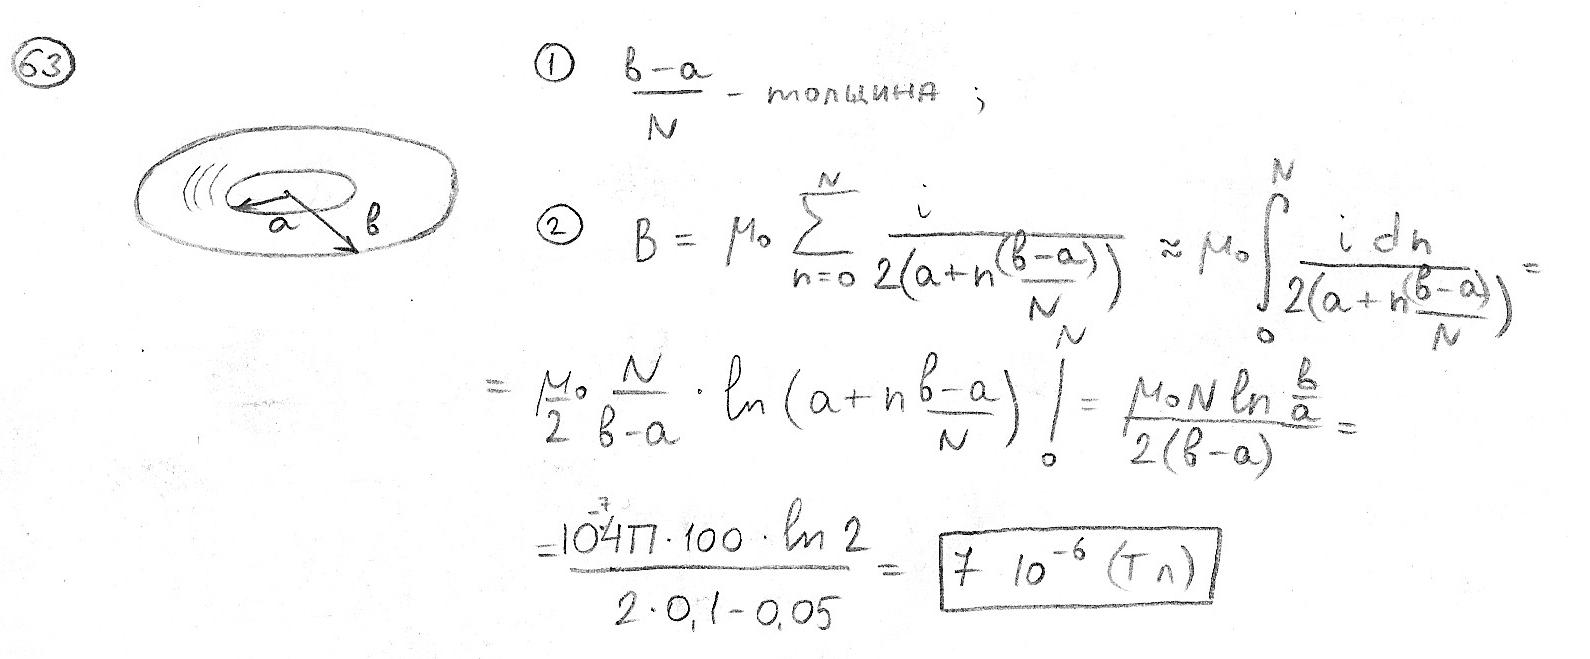 63
① (в-а)/N - толщина ;
а в
② B = μ₀ ∑_{n=0}^{N} i/(2(a+n(в-а)/N)) ≈ μ₀ ∫₀ᴺ i dn/(2(a+n(в-а)/N)) =
= μ₀/2 N/(в-а) · ln (a+n (в-а)/N) |₀ᴺ = μ₀N ln в/а / 2(в-а) =
= 10⁻⁷4π·100·ln 2 / 2·0,1-0,05 = 7 10⁻⁶ (Тл)